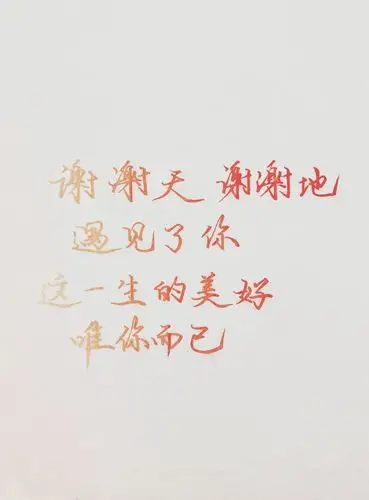 谢谢天 谢谢地
遇见了你
这一生的美好
唯你而已